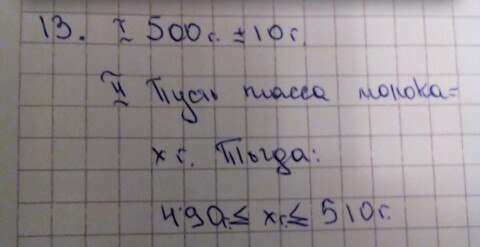 13. I 500г. ± 10г.
II Пусть масса молока =
х г. Тогда:
490 ≤ хг. ≤ 510г.